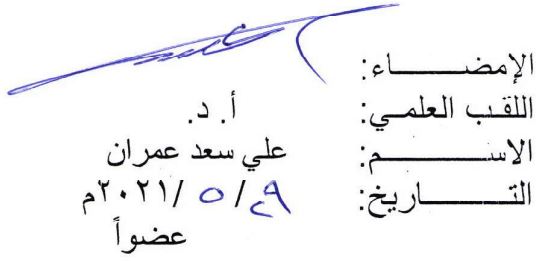 الإمضــــــــاء:
اللقب العلمي: أ. د.
الاســــــــم: علي سعد عمران
التــــــــاريخ: ٢٩/ ٥ /٢٠٢١م
عضواً